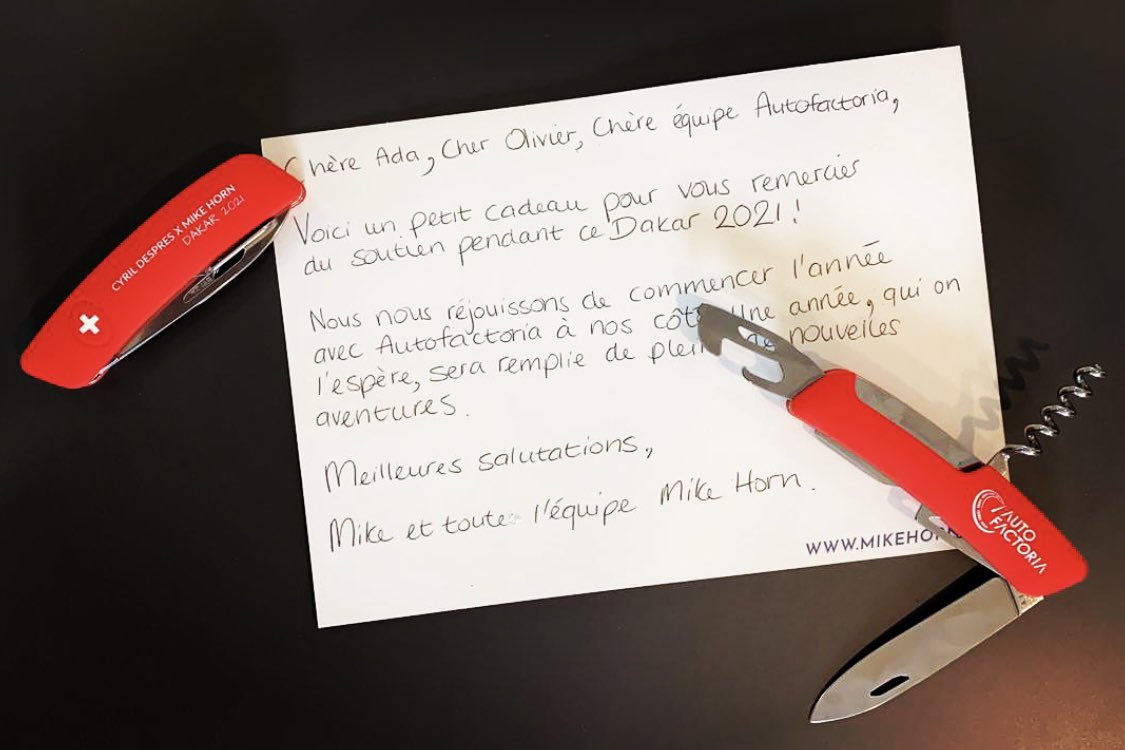 Chère Ada, Cher Olivier, Chère équipe Autofactoria,
Voici un petit cadeau pour vous remercier
du soutien pendant ce Dakar 2021!
Nous nous réjouissons de commencer l'année
avec Autofactoria à nos côt Une année, qui on
l'espère, sera remplie de plein de nouvelles
aventures.
Meilleures salutations,
Mike et toute l'équipe Mike Horn.
WWW.MIKEHOR
CYRIL DESPRES X MIKE HORN
DAKAR 2021
AUTO
FACTORIA